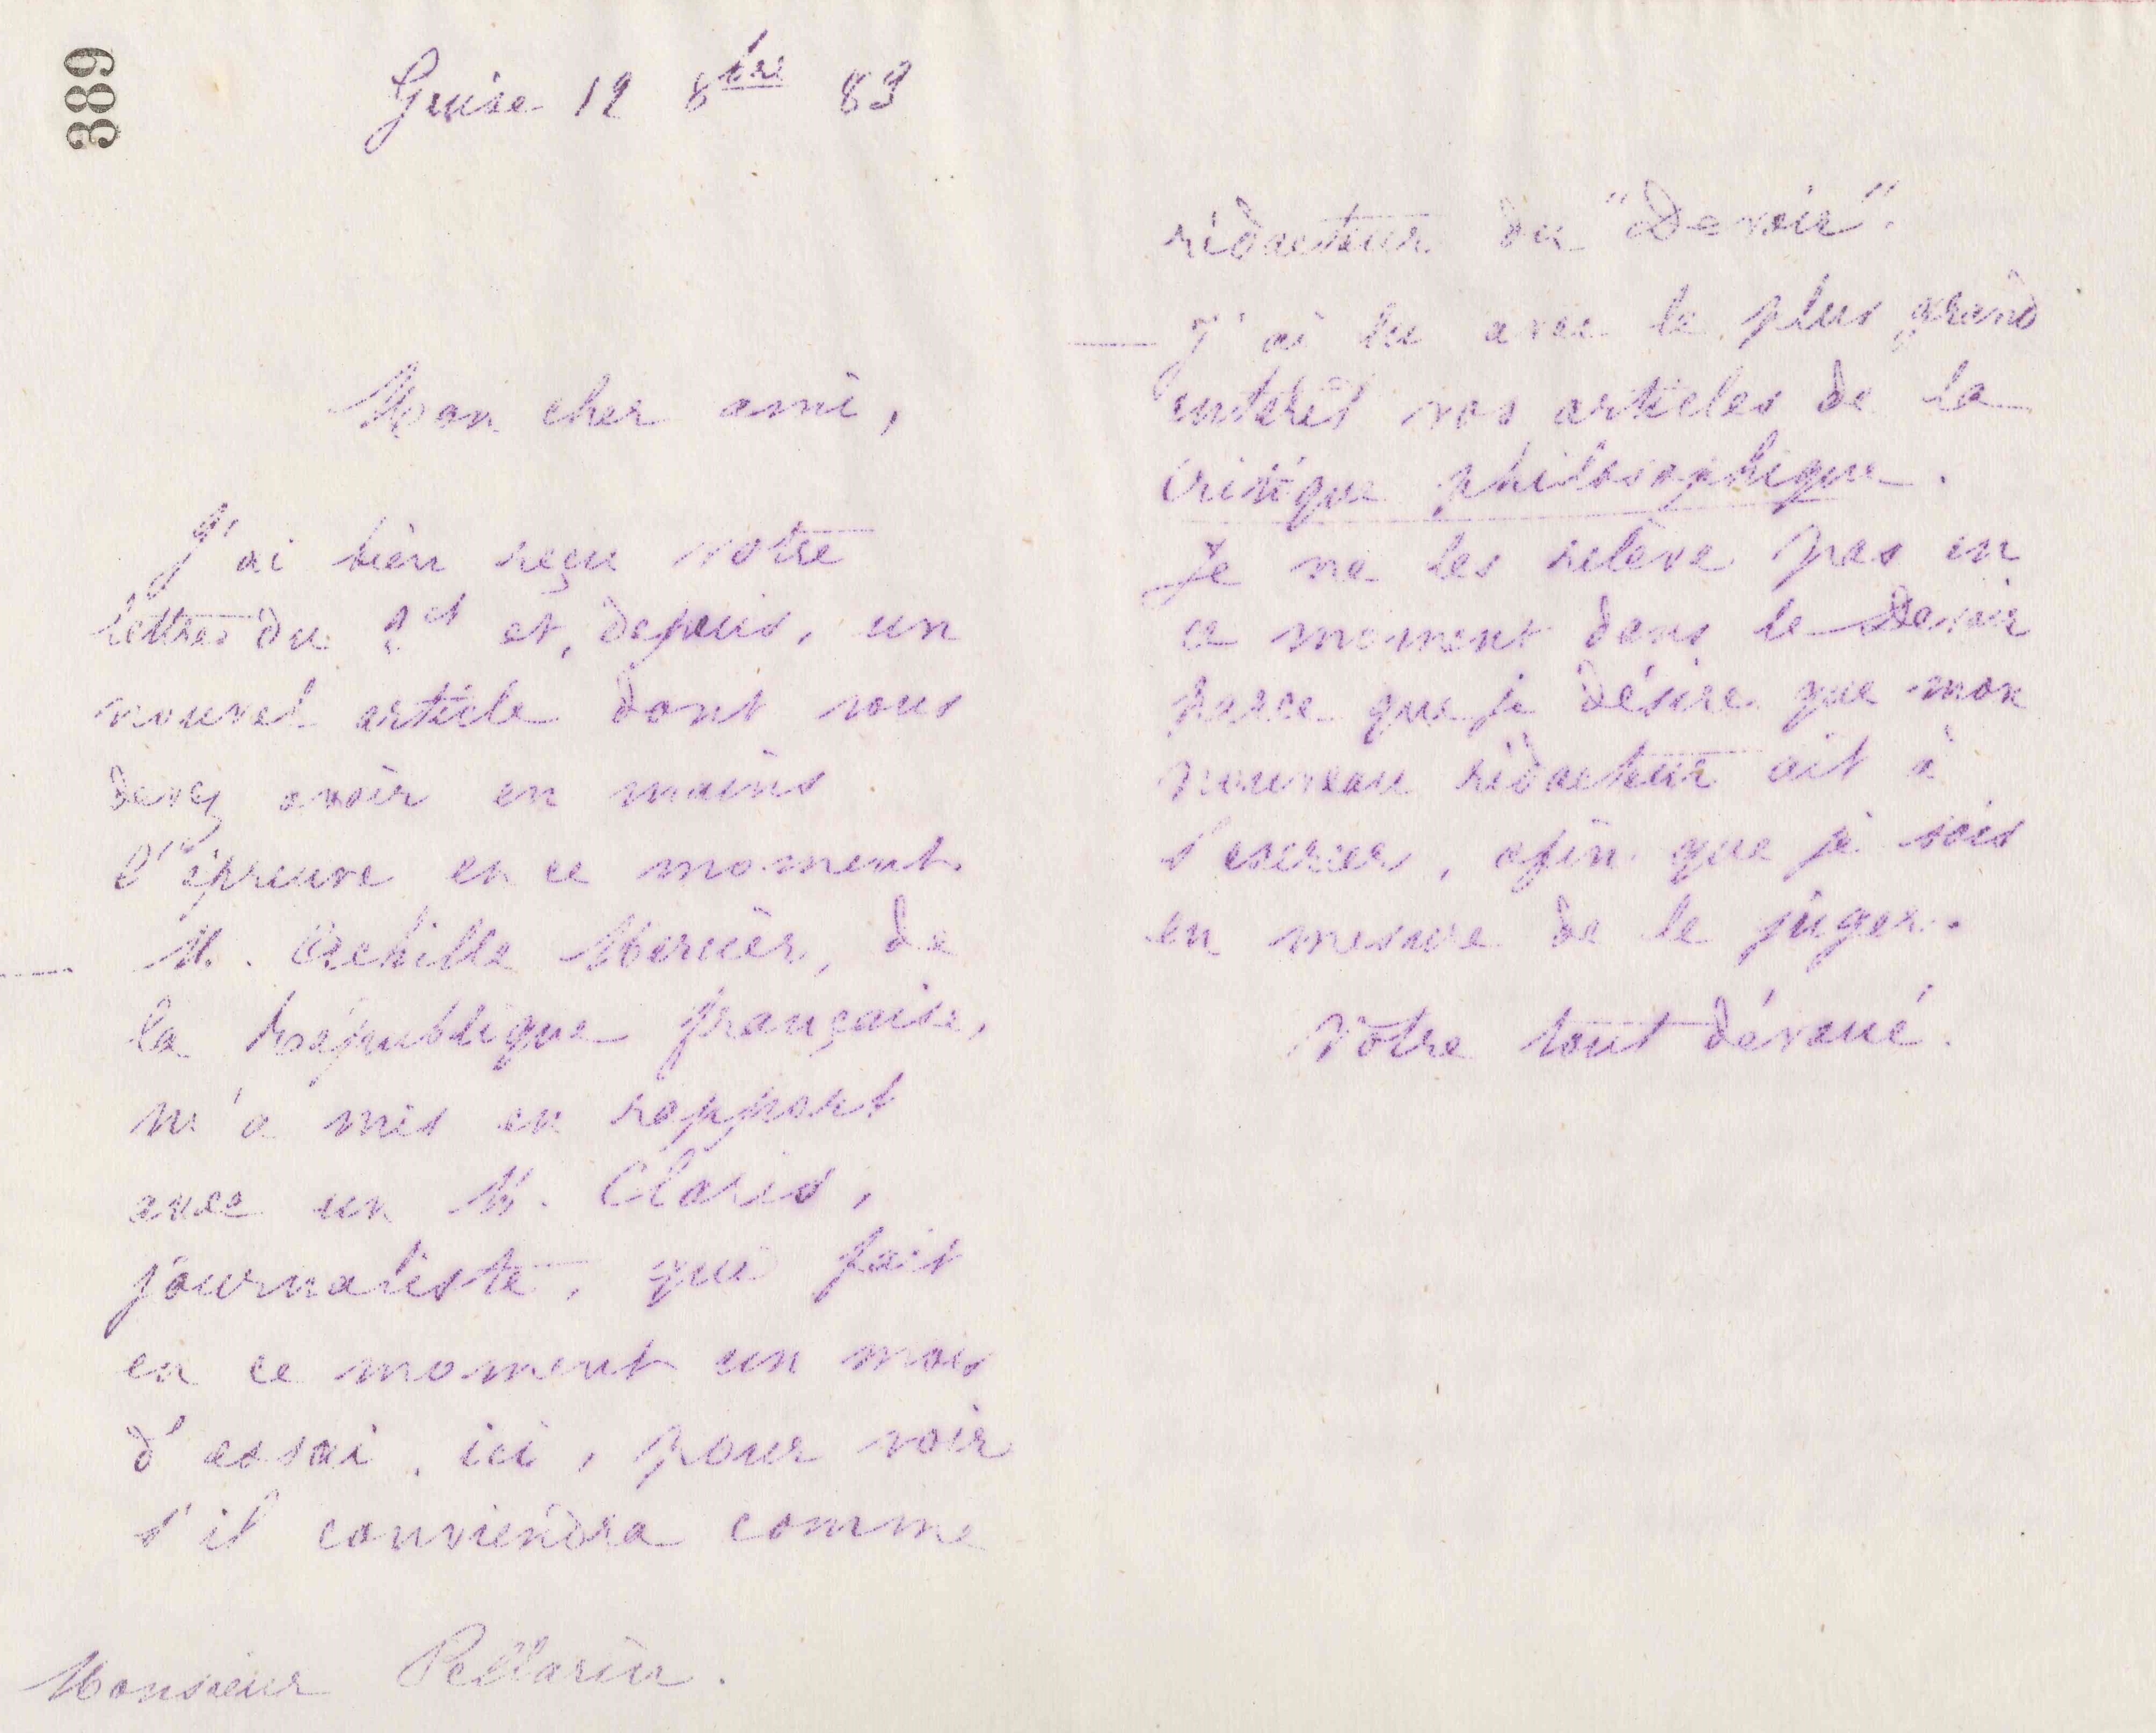 389
Guise 12 8bre 83
Mon cher ami,
J'ai bien reçu votre
lettre du 2ct et, depuis, un
nouvel article dont vous
devez avoir en mains
l'épreuve en ce moment
M. Achille Mercier, de
la République française,
m'a mis en rapport
avec un M. Claris,
journaliste, qui fait
en ce moment un mois
d'essai, ici, pour voir
s'il conviendra comme
Monsieur Pellarin.
rédacteur du "Devoir".
J'ai lu avec le plus grand
intérêt vos articles de la
critique philosophique.
Je ne les relève pas en
ce moment dans le Devoir
parce que je désire que mon
nouveau rédacteur ait à
s'exercer, afin que je sois
en mesure de le juger.
Votre tout dévoué.